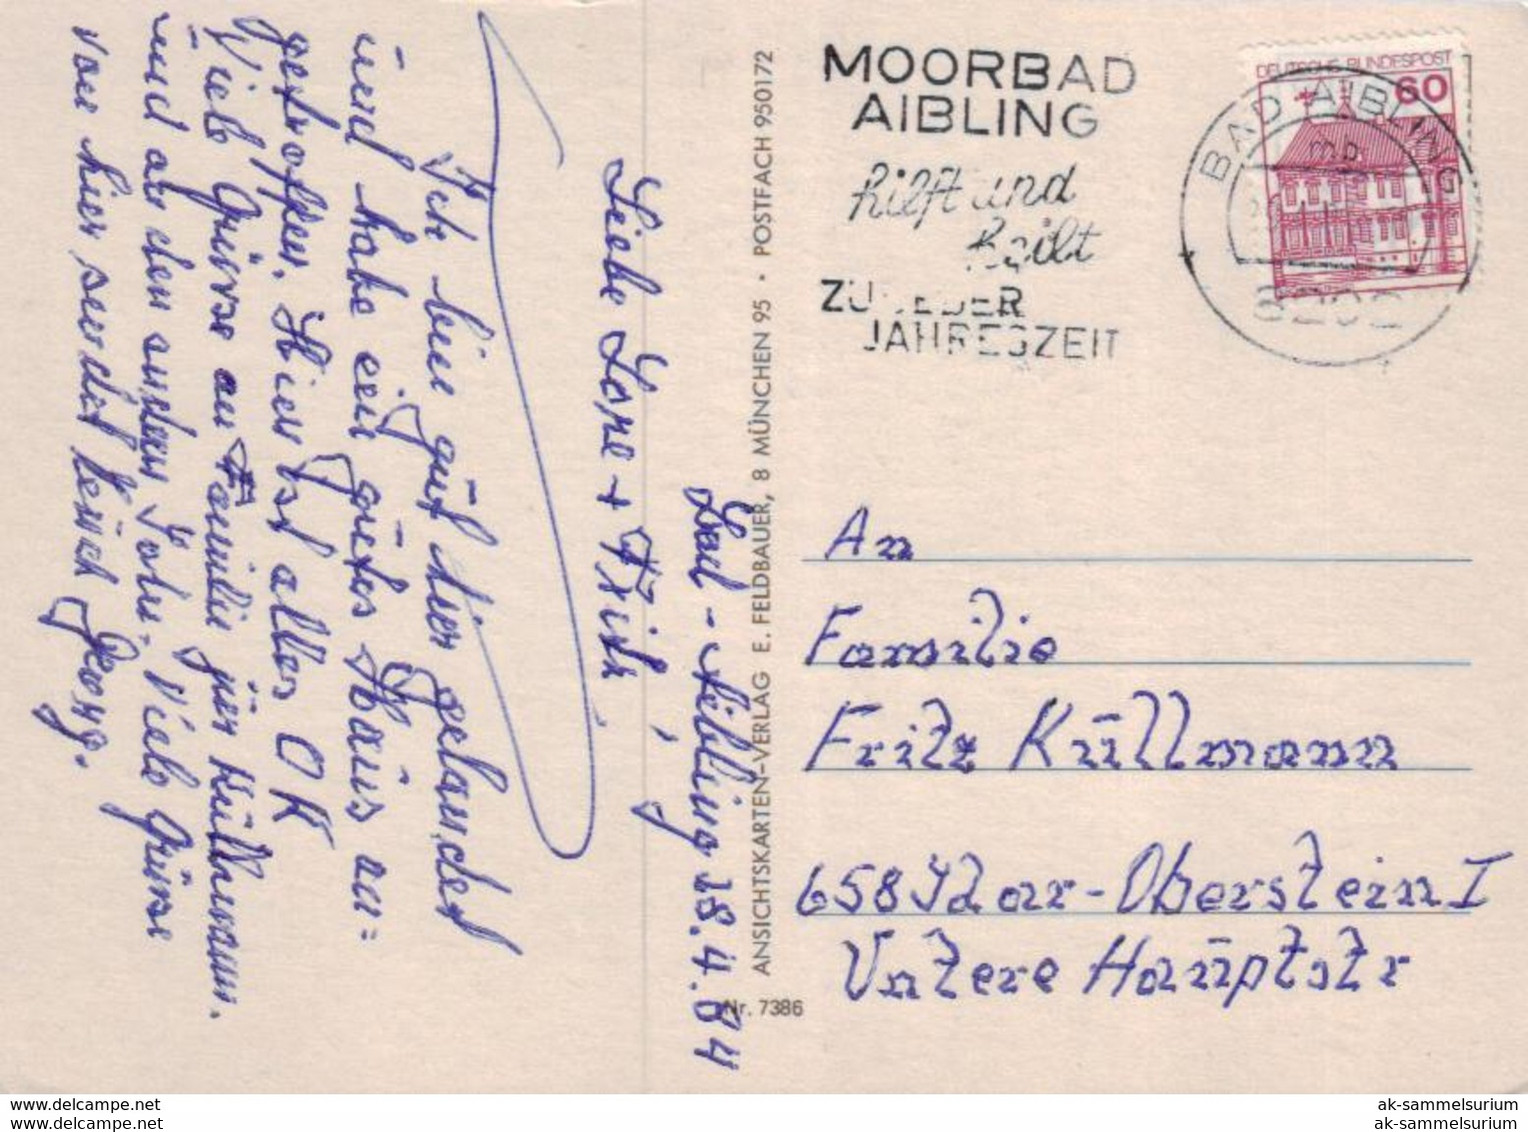 MOORBAD
AIBLING
hilft und
heilt
ZU JEDER
JAHRESZEIT
DEUTSCHE BUNDESPOST
60
BAD AIBLING
8202
Bad-Aibling 28.4.84
Liebe Lore + Fritz,
Ich bin gut hier gelandet
und habe ein gutes Haus an=
getroffen. Hier ist alles OK
Viele Grüsse an Familie jür Küllmann.
und an den andern Vote. Viele Grüsse
von hier sendet Eeuch Georg.
ANSICHTSKARTEN-VERLAG E. FELDBAUER, 8 MÜNCHEN 95 · POSTFACH 950172
Nr. 7386
An
Familie
Fritz Küllmann
658 Idar-Oberstein I
Untere Hauptstr
www.delcampe.net
ak-sammelsurium
www.delcampe.net
ak-sammelsurium